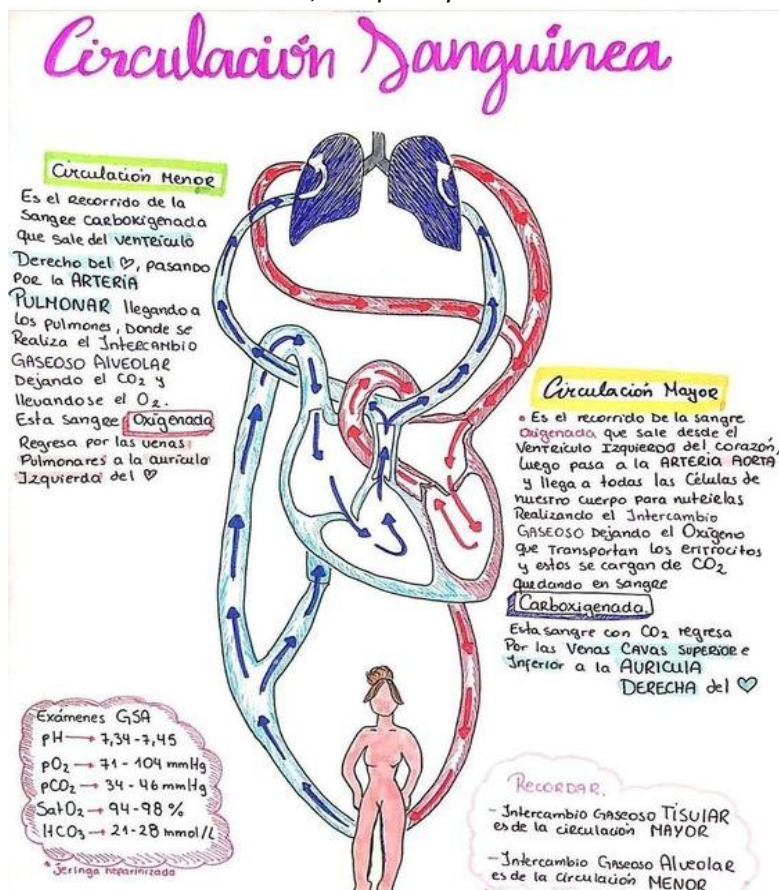 Circulación Sanguínea
Circulación Menor
Es el recorrido de la
Sangre carboxigenada
que sale del ventrículo
Derecho Del ♡, pasando
Por la ARTERIA
PULMONAR llegando a
los pulmones, Donde se
Realiza el Intercambio
GASEOSO AlVEOLAR
Dejando el CO₂ y
llevandose el O₂.
Esta sangre Oxigenada
Regresa por las venas
Pulmonares a la aurícula
Izquierda del ♡
Circulación Mayor
• Es el recorrido De la sangre
Oxigenada que sale desde el
Ventrículo IZQUIERDO del corazón,
luego pasa a la ARTERIA AORTA
y llega a todas las Células de
nuestro cuerpo para nutrirlas
Realizando el Intercambio
GASEOSO Dejando el Oxígeno
que Transportan los eritrocitos
y estos se cargan de CO₂
quedando en sangre
Carboxigenada.
Esta sangre con CO₂ regresa
Por las Venas CAVAS SUPERIOR e
Inferior a la AURICULA
DERECHA del ♡
Exámenes GSA
pH → 7,34-7,45
pO₂ → 71-104 mmHg
pCO₂ → 34-46 mmHg
SatO₂ → 94-98 %
HCO₃ → 21-28 mmol/L
* Jeringa heparinizada
RECORDAR.
- Intercambio Gaseoso TISULAR
es de la circulación MAYOR
- Intercambio Gaseoso Alveolar
es de la Circulación MENOR